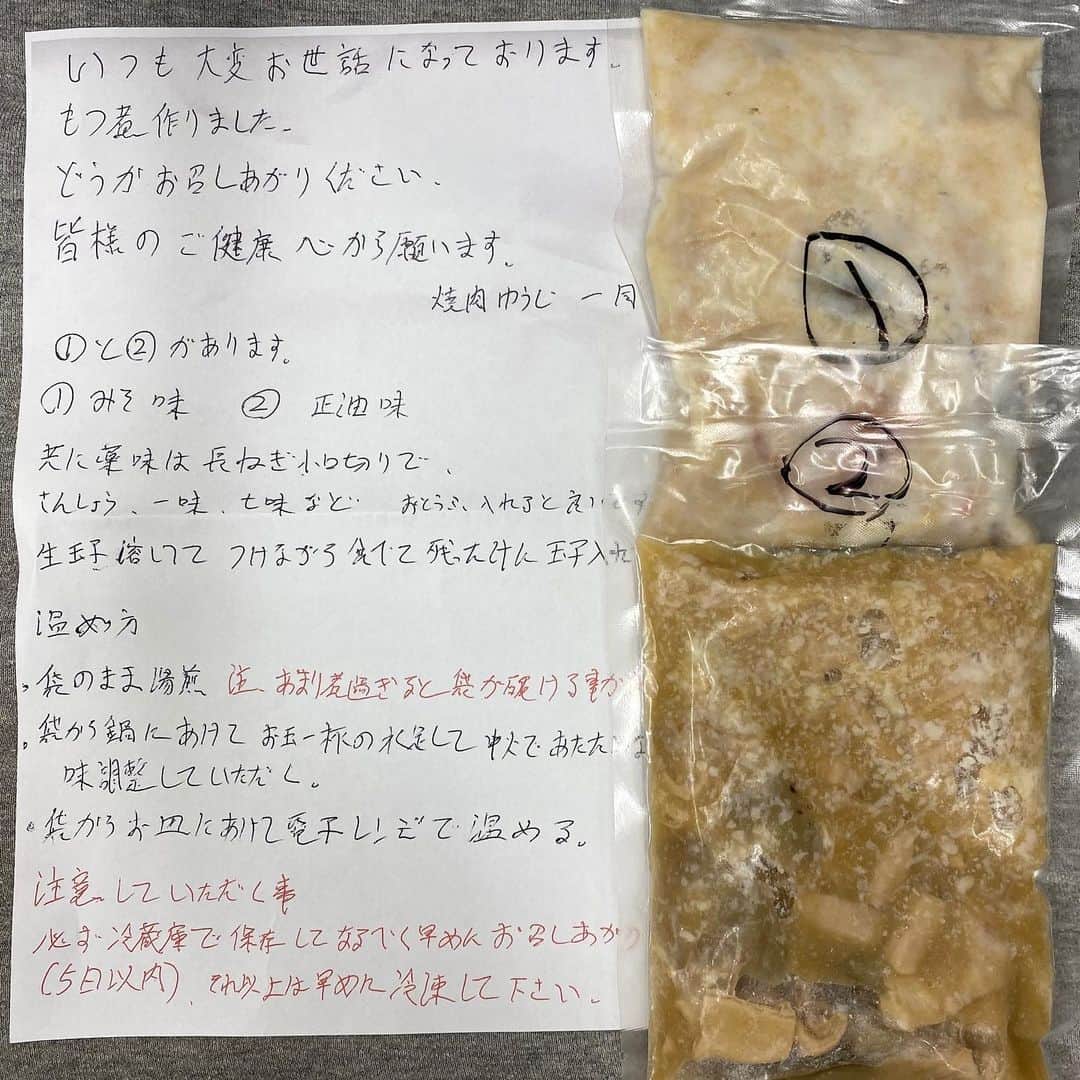 いつも大変お世話になっております。
もつ煮作りました。
どうかお召しあがりください。
皆様のご健康心から願います。
焼肉ゆうじ 一同
①と②があります。
①みそ味 ②正油味
共に薬味は長ねぎ小口切りで、
さんしょう、一味、七味など おとうふ、入れると良いです
生玉子溶してつけながら食べて残ったけに玉子入れ
温め方
・袋のまま湯煎 注、あまり煮過ぎると袋が破ける事が
・袋から鍋にあけてお玉一杯の水足して中火であたため
味調整していただく。
・袋からお皿にあけて電子レンジで温める。
注意していただく事
必ず冷蔵庫で保存してなるべく早めにお召しあがり
(5日以内)、それ以上は早めに冷凍して下さい。
1
2